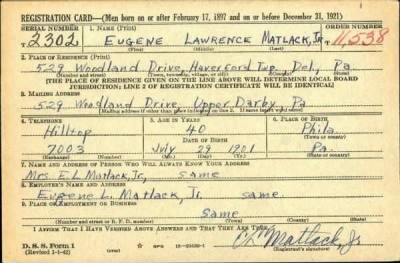 REGISTRATION CARD—(Men born on or after February 17, 1897 and on or before December 31, 1921)
SERIAL NUMBER 1. NAME (Print) ORDER NUMBER
T 2302 EUGENE LAWRENCE MATLACK, Jr. 11,538
(First) (Middle) (Last)
2. PLACE OF RESIDENCE (Print)
529 Woodland Drive, Haverford Twp. Del., Pa
(Number and street) (Town, township, village, or city) (County) (State)
[THE PLACE OF RESIDENCE GIVEN ON THE LINE ABOVE WILL DETERMINE LOCAL BOARD
JURISDICTION; LINE 2 OF REGISTRATION CERTIFICATE WILL BE IDENTICAL]
3. MAILING ADDRESS
529 Woodland Drive, Upper Darby, Pa
[Mailing address if other than place indicated on line 2. If same insert word same]
4. TELEPHONE 5. AGE IN YEARS 6. PLACE OF BIRTH
Hilltop 40 Phila.
DATE OF BIRTH (Town or county)
7003 July 29 1901 Pa.
(Mo.) (Day) (Yr.) (State or country)
7. NAME AND ADDRESS OF PERSON WHO WILL ALWAYS KNOW YOUR ADDRESS
Mrs. E. L. Matlack, Jr, same
8. EMPLOYER'S NAME AND ADDRESS
Eugene L. Matlack, Jr. same
9. PLACE OF EMPLOYMENT OR BUSINESS
same
(Number and street or R. F. D. number) (Town) (County) (State)
I AFFIRM THAT I HAVE VERIFIED ABOVE ANSWERS AND THAT THEY ARE TRUE.
D. S. S. Form 1 (over) Matlack, Jr
(Revised 1-1-42) (Registrant's signature)